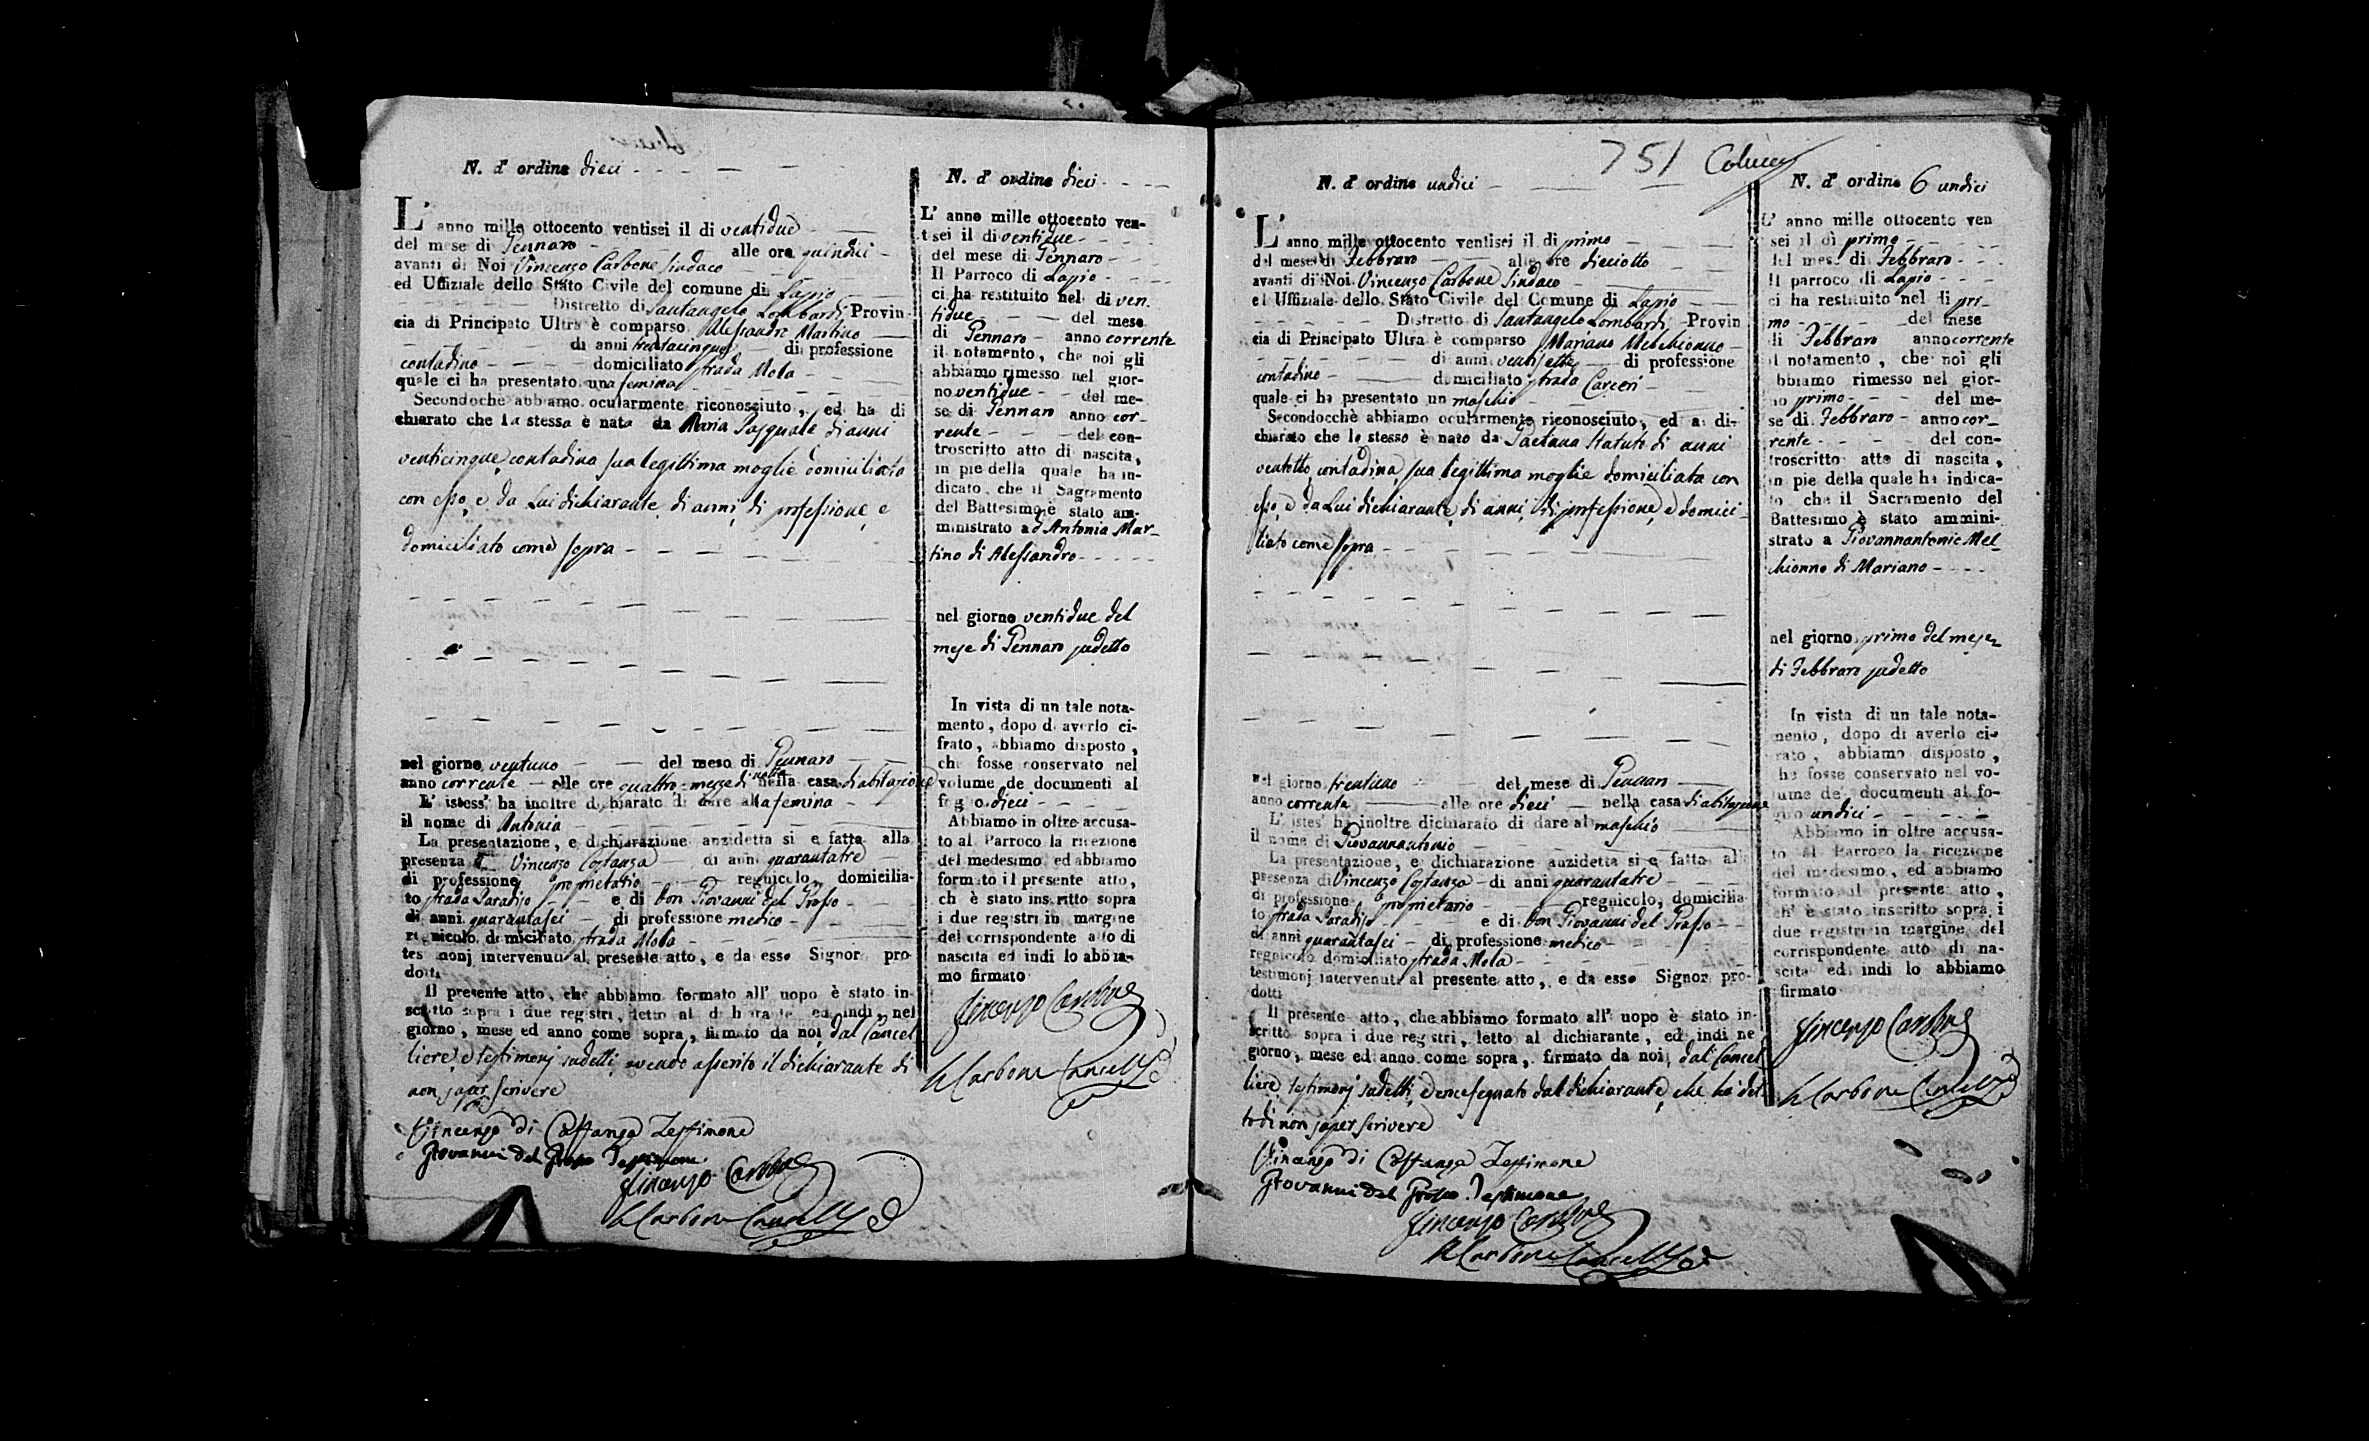 N. d' ordine dieci
L' anno mille ottocento ventisei il di ventidue
del mese di Gennaro alle ore quindici
avanti di Noi Vincenzo Carbone Sindaco
ed Uffiziale dello Stato Civile del comune di Lapio
Distretto di Santangelo Lombardi Provin-
cia di Principato Ultra è comparso Alessandro Martino
di anni trentacinque di professione
contadino domiciliato strada Mola
quale ci ha presentato una femina
Secondochè abbiamo ocularmente riconosciuto, ed ha di
chiarato che la stessa è nata da Maria Pasquale di anni
venticinque contadina sua legittima moglie domiciliata
con esso, e da Lui dichiarante di anni, di professione, e
domiciliato come sopra
nel giorno ventuno del mese di Gennaro
anno corrente alle ore quattro, mezza di notte nella casa di abitazione
L' istess' ha inoltre dichiarato di dare alla femina
il nome di Antonia
La presentazione, e dichiarazione anzidetta si e fatta alla
presenza di Vincenzo Costanza di anni quarantatre
di professione proprietario regnicolo, domicilia-
to strada Paradiso e di Don Giovanni del Grosso
di anni quarantasei di professione medico
regnicolo, domiciliato strada Mola
testimonj intervenuti al presente atto, e da esso Signor pro-
dotti
Il presente atto, che abbiamo formato all' uopo è stato in-
scritto sopra i due registri, letto al dichiarante, ed indi, nel
giorno, mese ed anno come sopra, firmato da noi, dal Cancel
liere, e testimonj sudetti, avendo asserito il dichiarante di
non saper scrivere
Vincenzo di Costanza Testimone
Giovanni del Grosso Testimone
Vincenzo Carbone
Carbone Cancell.
N. d' ordine dieci
L' anno mille ottocento ven-
tsei il di ventidue
del mese di Gennaro
Il Parroco di Lapio
ci ha restituito nel di ven-
tidue del mese
di Gennaro anno corrente
il notamento, che noi gli
abbiamo rimesso nel gior-
no ventidue del me-
se di Gennaro anno cor-
rente del con-
troscritto atto di nascita,
in piè della quale ha in-
dicato, che il Sagramento
del Battesimo è stato am-
ministrato ad Antonia Mar-
tino di Alessandro
nel giorno ventidue del
mese di Gennaro sudetto
In vista di un tale nota-
mento, dopo di averlo ci-
frato, abbiamo disposto,
che fosse conservato nel
volume de documenti al
foglio dieci
Abbiamo in oltre accusa-
to al Parroco la ricezione
del medesimo, ed abbiamo
formato il presente atto,
ch' è stato inscritto sopra
i due registri in margine
del corrispondente atto di
nascita ed indi lo abbia-
mo firmato
Vincenzo Carbone
Carbone Cancell.
751 Colucci
N. d' ordine undici
L' anno mille ottocento ventisei il di primo
del mese di Febbraro alle ore dieciotto
avanti di Noi Vincenzo Carbone Sindaco
ed Uffiziale dello Stato Civile del Comune di Lapio
Distretto di Santangelo Lombardi Provin
cia di Principato Ultra è comparso Mariano Melchionno
di anni ventisette di professione
contadino domiciliato strada Carceri
quale ci ha presentato un maschio
Secondocchè abbiamo ocularmente riconosciuto, ed a di-
chiarato che lo stesso è nato da Gaetana Statuto di anni
ventotto contadina, sua legittima moglie domiciliata con
esso, e da Lui dichiarante, di anni, di professione, e domici-
liato come sopra
nel giorno trentuno del mese di Gennaro
anno corrente alle ore dieci nella casa di abitazione
L' istes' ha inoltre dichiarato di dare al maschio
il nome di Giovannantonio
La presentazione, e dichiarazione anzidetta si e fatta all
presenza di Vincenzo Costanza di anni quarantatre
di professione proprietario regnicolo, domicilia
to strada Paradiso e di Don Giovanni del Grosso
di anni quarantasei di professione medico
regnicolo domiciliato strada Mola
testimonj intervenuti al presente atto, e da esso Signor pro-
dotti
Il presente atto, che abbiamo formato all' uopo è stato in-
scritto sopra i due registri, letto al dichiarante, ed indi ne
giorno, mese ed anno come sopra, firmato da noi, dal Cancel
liere testimonj sudetti, e crocesegnato dal dichiarante, che ha det
to di non saper scrivere
Vincenzo di Costanza Testimone
Giovanni del Grosso Testimone
Vincenzo Carbone
Carbone Cancell.
N. d' ordine 6 undici
L' anno mille ottocento ven
sei il dì primo
del mese di Febbraro
Il parroco di Lapio
ci ha restituito nel di pri-
mo del mese
di Febbraro anno corrente
il notamento, che noi gli
abbiamo rimesso nel gior-
no primo del me-
se di Febbraro anno cor-
rente del con-
troscritto atto di nascita,
in piè della quale ha indica-
to che il Sacramento del
Battesimo è stato ammini-
strato a Giovannantonio Mel-
chionno di Mariano
nel giorno primo del mese
di Febbraro sudetto
In vista di un tale nota-
mento, dopo di averlo ci-
frato, abbiamo disposto,
che fosse conservato nel vo-
lume de' documenti al fo-
glio undici
Abbiamo in oltre accusa-
to al Parroco la ricezione
del medesimo, ed abbiamo
formato il presente atto,
ch' è stato inscritto sopra i
due registri in margine del
corrispondente atto di na-
scita ed indi lo abbiamo
firmato
Vincenzo Carbone
Carbone Cancell.